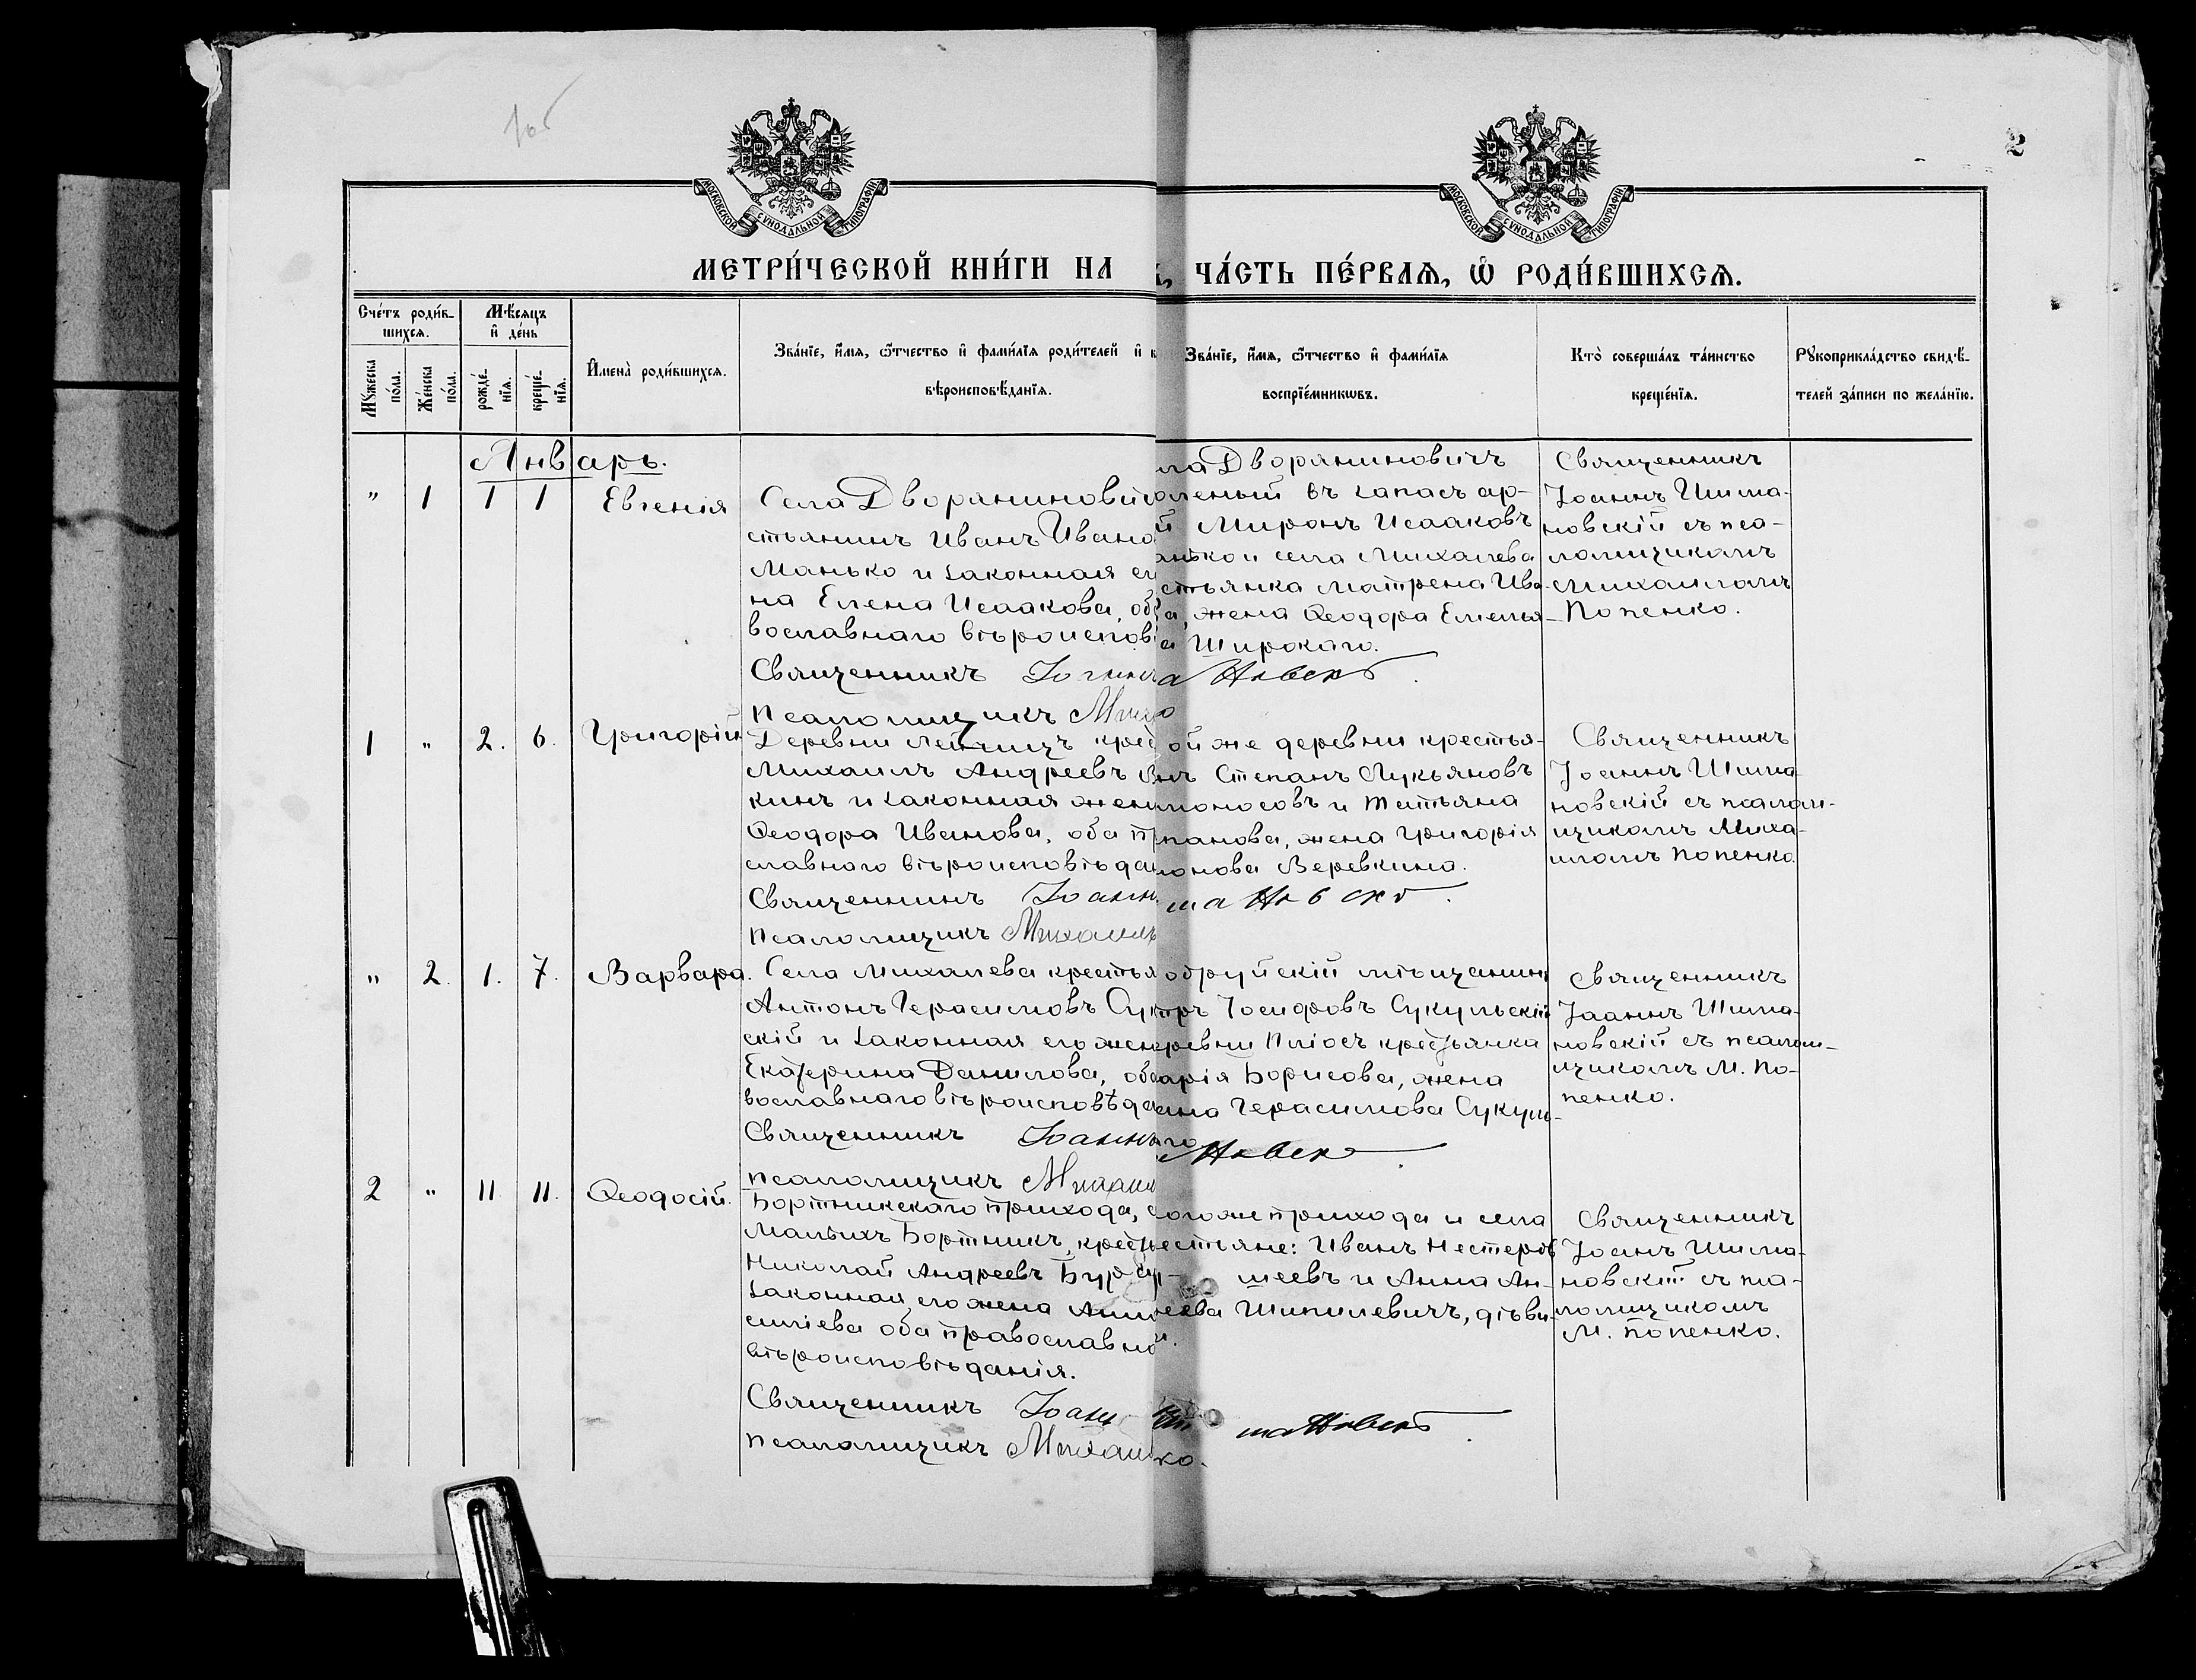 105
2
МОСКОВСКОЙ СѴНОДАЛЬНОЙ ТИПОГРАФІИ
МОСКОВСКОЙ СѴНОДАЛЬНОЙ ТИПОГРАФІИ
МЕТРИ́ЧЕСКОЙ КНИ́ГИ НА
ЧА́СТЬ ПЕ́РВАѦ, Ѡ҆ РОДИ́ВШИХСѦ.
Сче́тъ роди́в-
шихсѧ.
Мѣ́сѧцъ
и҆ де́нь
Мꙋ́жеска
по́ла.
Же́нска
по́ла.
рожде́-
нїѧ.
креще́-
нїѧ.
И҆мена̀ роди́вшихсѧ.
Зва́нїе, и҆́мѧ, ѻ҆́тчество и҆ фами́лїѧ роди́телей и҆ к
вѣроисповѣ́данїѧ.
Зва́нїе, и҆́мѧ, ѻ҆́тчество и҆ фами́лїѧ
воспрїе́мникѡвъ.
Кто̀ соверша́лъ та́инство
креще́нїѧ.
Рꙋкоприкла́дство свидѣ́-
телей за́писи по жела́нїю.
Январь.
" 1 1 1 Евгенія
Села Дворянинович
стьянинъ Иванъ Ивано
Манько и законная ег
на Елена Исаакова, об
вославнаго вѣроиспов
Священникъ Іоанн
Псаломщикъ Мих
ла Дворяниновичъ
оленный въ запасъ ар-
й Миронъ Исааковъ
анько и села Михалева
стьянка Матрена Ива-
а, жена Ѳеодора Емелья-
а Широкаго.
Священникъ
Іоаннъ Шима-
новскій съ пса-
ломщикомъ
Михаиломъ
Попенко.
1 " 2. 6. Григорій
Деревни Лейчицъ крес
Михаилъ Андреевъ В
кинъ и законная жен
Ѳеодора Иванова, оба пр
славнаго вѣроисповѣдан
Священникъ Іоанн
Псаломщикъ Михаилъ
ой же деревни крестья-
нъ Степанъ Лукьяновъ
моносовъ и Татьяна
панова, жена Григорія
онова Веревкина.
Священникъ
Іоаннъ Шима-
новскій съ псалом-
щикомъ Миха-
иломъ Попенко.
" 2. 1. 7. Варвара.
Села Михалева крестья
Антонъ Герасимовъ Сук
скій и законная его жен
Екатерина Данилова, оба
вославнаго вѣроисповѣда
Священникъ Іоаннъ
Псаломщикъ Михаил
обруйскій мѣщанинъ
тръ Іосифовъ Сукульскій
ревни Плёсъ крестьянка
арія Борисова, жена
ана Герасимова Сукуль-
го
Священникъ
Іоаннъ Шима-
новскій съ псалом-
щикомъ М. По-
пенко.
2 " 11. 11. Ѳеодосій.
Бортникскаго прихода, с
Малыхъ Бортникъ, кресть
Николай Андреевъ Бур
законная его жена Анн
силіева оба православно
вѣроисповѣданія.
Священникъ Іоанн
Псаломщикъ Михаил
ого же прихода и села
естьяне: Иванъ Нестеровъ
шеевъ и Анна Ан-
еева Шипилевичъ, дѣви-
Священникъ
Іоанъ Шима-
новскій съ пса-
ломщикомъ
М. Попенко.
ко.